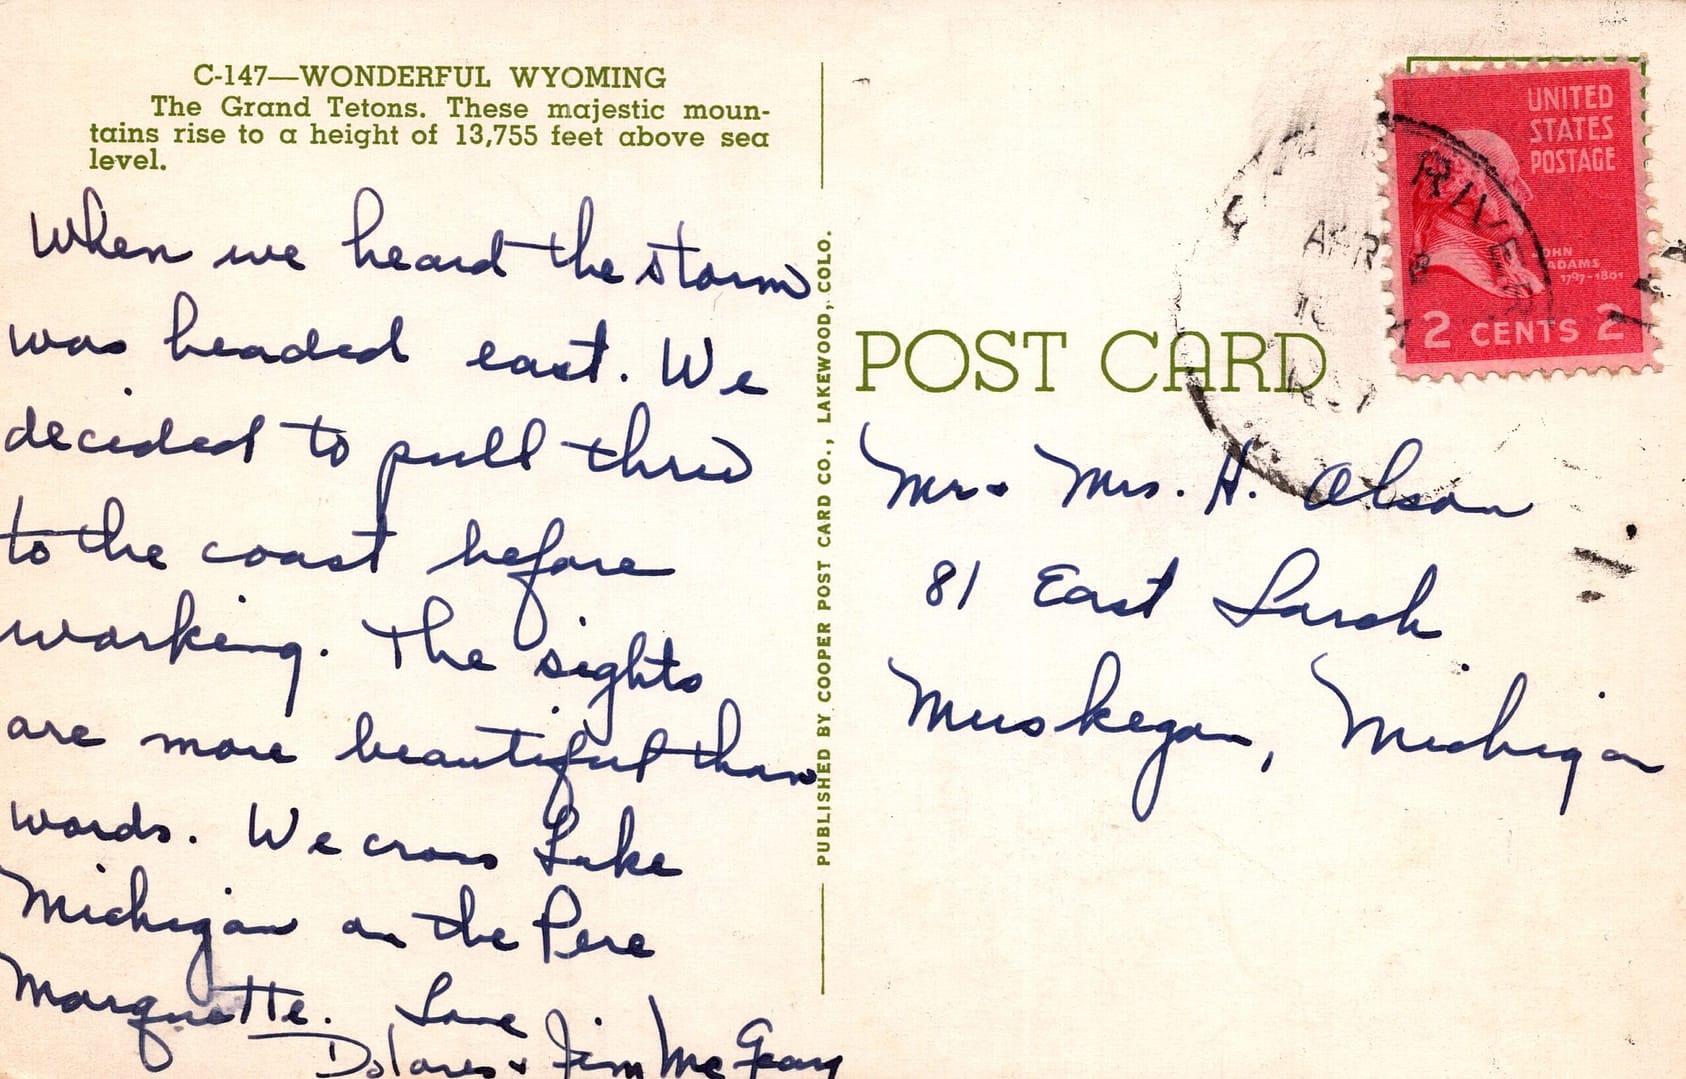 C-147—WONDERFUL WYOMING
The Grand Tetons. These majestic moun-
tains rise to a height of 13,755 feet above sea
level.
When we heard the storm
was headed east. We
decided to pull thru
to the coast before
working. The sights
are more beautiful than
words. We cross Lake
Michigan on the Pere
Marquette. Love
Dolores & Jim McGeary
PUBLISHED BY COOPER POST CARD CO., LAKEWOOD, COLO.
UNITED
STATES
POSTAGE
JOHN
ADAMS
1797-1801
2 CENTS 2
RIVER
APR 8
POST CARD
Mr & Mrs. H. Olson
81 East Larch
Muskegon, Michigan